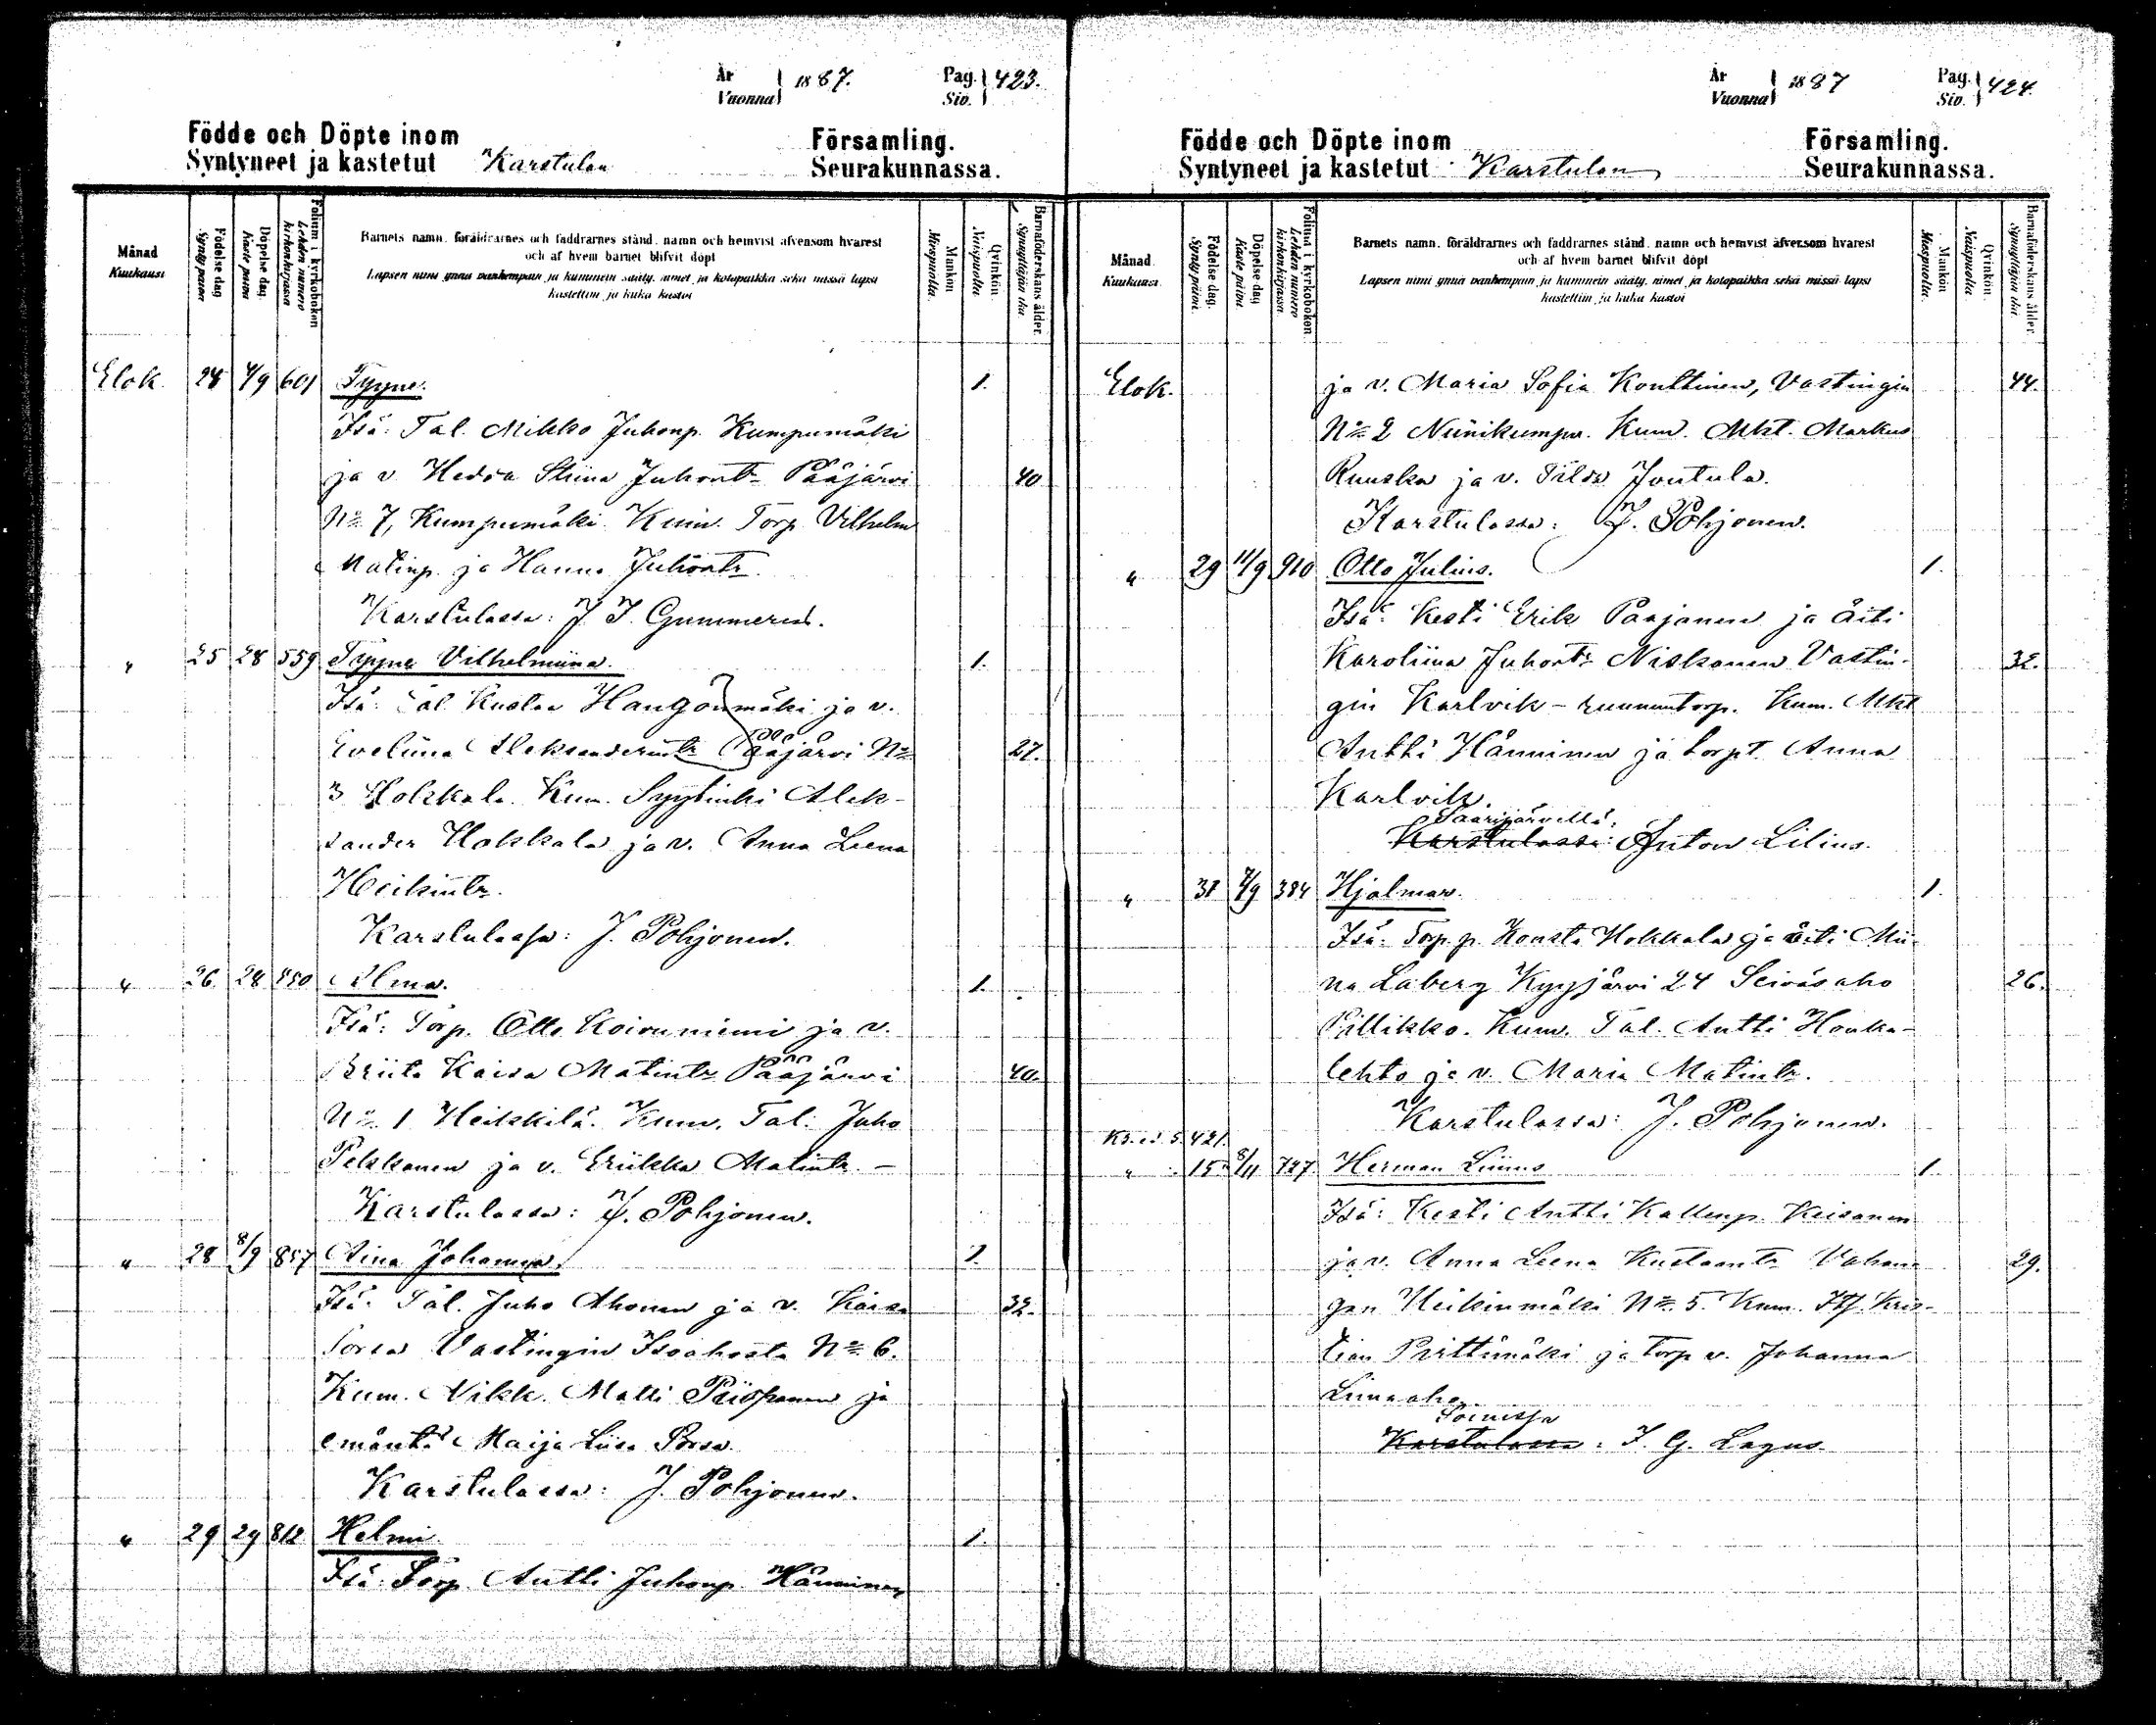 År
Vuonna 1887.
Pag.
Siv. 423.
Födde och Döpte inom
Syntyneet ja kastetut Karstulan
Församling.
Seurakunnassa.
Månad
Kuukausi
Födelse dag
Synty päivä
Döpelse dag
Kaste päivä
Folium i kyrkoboken
Lehden numero
kirkonkirjassa
Barnets namn, föräldrarnes och faddrarnes stånd, namn och hemvist äfvensom hvarest
och af hvem barnet blifvit döpt
Lapsen nimi ynnä vanhempain ja kummein sääty, nimet ja kotopaikka sekä missä lapsi
kastettiin ja kuka kastoi
Mankön
Miespuolia
Qvinkön
Naispuolia
Barnaföderskans ålder.
Synyttäjän ikä
Elok. 24 4/9 601 Tyyne. 1.
Isä: Tal. Mikko Juhonp. Kumpumäki
ja v. Hedda Stiina Juhontr Pääjärvi 40
No 7, Kumpumäki. Kum. Torp. Vilhelm
Matinp. ja Hanna Juhontr.
Karstulassa: J. I. Gummerus.
" 25 28 559 Tyyne Vilhelmiina. 1.
Isä: Tal. Kustaa Hangonmäki ja v.
Eveliina Aleksanderintr Pääjärvi No 27.
3 Hokkala. Kum. Syytinki Alek-
sander Hokkala ja v. Anna Leena
Heikintr.
Karstulassa: J. Pohjonen.
" 26 28 850 Alma. 1.
Isä: Torp. Otto Koivuniemi ja v.
Briita Kaisa Matintr Pääjärvi 40.
No 1 Heikkilä. Kum. Tal. Juho
Pekkanen ja v. Eriikka Matintr. –
Karstulassa: J. Pohjonen.
" 28 8/9 857 Aina Johanna. 1.
Isä: Tal. Juho Ahonen ja v. Kaisa 32.
Sorsa Vastingin Isoahosta No 6.
Kum. Nikk. Matti Piispanen ja
emäntä Maija Liisa
Karstulassa: J. Pohjonen.
" 29 29 812 Helmi 1.
Isä: Torp. Antti Juhonp. Hänninen
År
Vuonna 1887
Pag.
Siv. 424.
Födde och Döpte inom
Syntyneet ja kastetut Karstulan
Församling.
Seurakunnassa.
Månad.
Kuukausi.
Födelse dag.
Synty päivä.
Döpelse dag
Kaste päivä.
Folium i kyrkoboken.
Lehden numero
kirkonkirjassa.
Barnets namn, föräldrarnes och faddrarnes stånd, namn och hemvist äfvensom hvarest
och af hvem barnet blifvit döpt
Lapsen nimi ynnä vanhempain ja kummein sääty, nimet ja kotopaikka sekä missä lapsi
kastettiin ja kuka kastoi
Mankön
Miespuolia.
Qvinkön.
Naispuolia.
Barnaföderskans ålder.
Synyttäjän ikä
Elok. ja v. Maria Sofia Konttinen, Vastingin 44.
No 2 Niinikumpu. Kum. Mkt. Markus
Ruuska ja v. Tilda Joutula.
Karstulassa: J. Pohjonen.
" 29 11/9 910 Otto Julius. 1.
Isä: Kesti Erik Paajanen ja äiti
Karoliina Juhontr Niskanen Vastin- 32.
gin Karlvik – ruununtorp. Kum. Mkt
Antti Hänninen ja torpt. Anna
Karlvik.
Saarijärvellä:
Karstulassa: Anton Lilius.
" 31 4/9 384 Hjalmar. 1.
Isä: Torp.p. Konsta Hokkala ja äiti Mii-
na Laberg Kyyjärvi 24 Seiväsaho 26.
Pillikko. Kum. Tal. Antti Honka-
lehto ja v. Maria Matintr.
Karstulassa: J. Pohjonen.
Ks. s. 421.
" 15 8/11 727 Herman Liinus 1.
Isä: Kesti Antti Kallenp. Keisanen
ja v. Anna Leena Kustaantr Vahan- 29.
gan Heikinmäki No 5. Kum. Itf. Kris-
tian Pirttimäki ja torp. v. Johanna
Liinaaho
Soinissa
Karstulassa: I. G. Lagus.